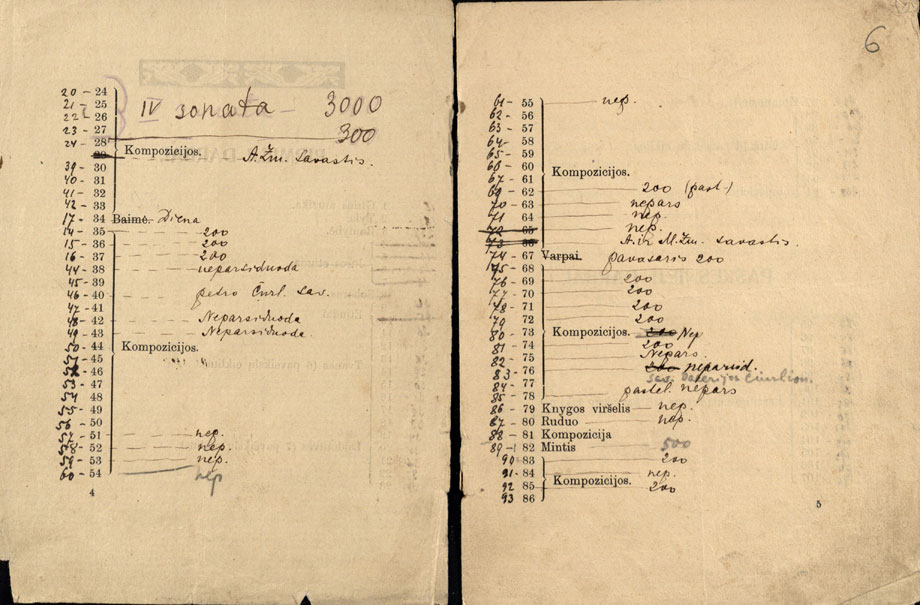 20 - 24
21 - 25 IV sonata - 3000
22 - 26
23 - 27 300
24 - 28
29 Kompozicijos. A. Žm. savastis.
39 - 30
40 - 31
41 - 32
42 - 33
17 - 34 Baimė. Diena
14 - 35 200
15 - 36 200
16 - 37 200
44 - 38 neparsiduoda
45 - 39
46 - 40 petro Čurl. sav.
47 - 41
48 - 42 Neparsiduoda
49 - 43 Neparsiduoda.
50 - 44 Kompozicijos.
51 - 45
52 - 46
53 - 47
54 48
55 - 49
56 - 50
57 - 51 nep.
58 - 52 nep.
59 - 53 nep.
60 - 54 nep
4
6
61 - 55 nep.
62 - 56
63 - 57
64 - 58
65 - 59
66 - 60
67 - 61 Kompozicijos.
69 - 62 200 (past.)
70 - 63 nepars
71 64 nep.
72 65 nep.
73 66 A. ir M. Žm. savastis.
74 - 67 Varpai. pavasaris 200
75 - 68
76 - 69 200
77 - 70 200
78 - 71 200
79 72 200
80 - 73 Kompozicijos. 200 Nep
81 - 74 200
82 - 75 Nepars.
83 - 76 200 neparsid.
84 - 77 sav. Valerijos Čiurlion.
85 - 78 pastel. nepars
86 - 79 Knygos viršelis nep.
87 - 80 Ruduo nep.
88 - 81 Kompozicija
89 - 82 Mintis 500
90 83 200
91 - 84 nep.
92 85 Kompozicijos. 200
93 86
5